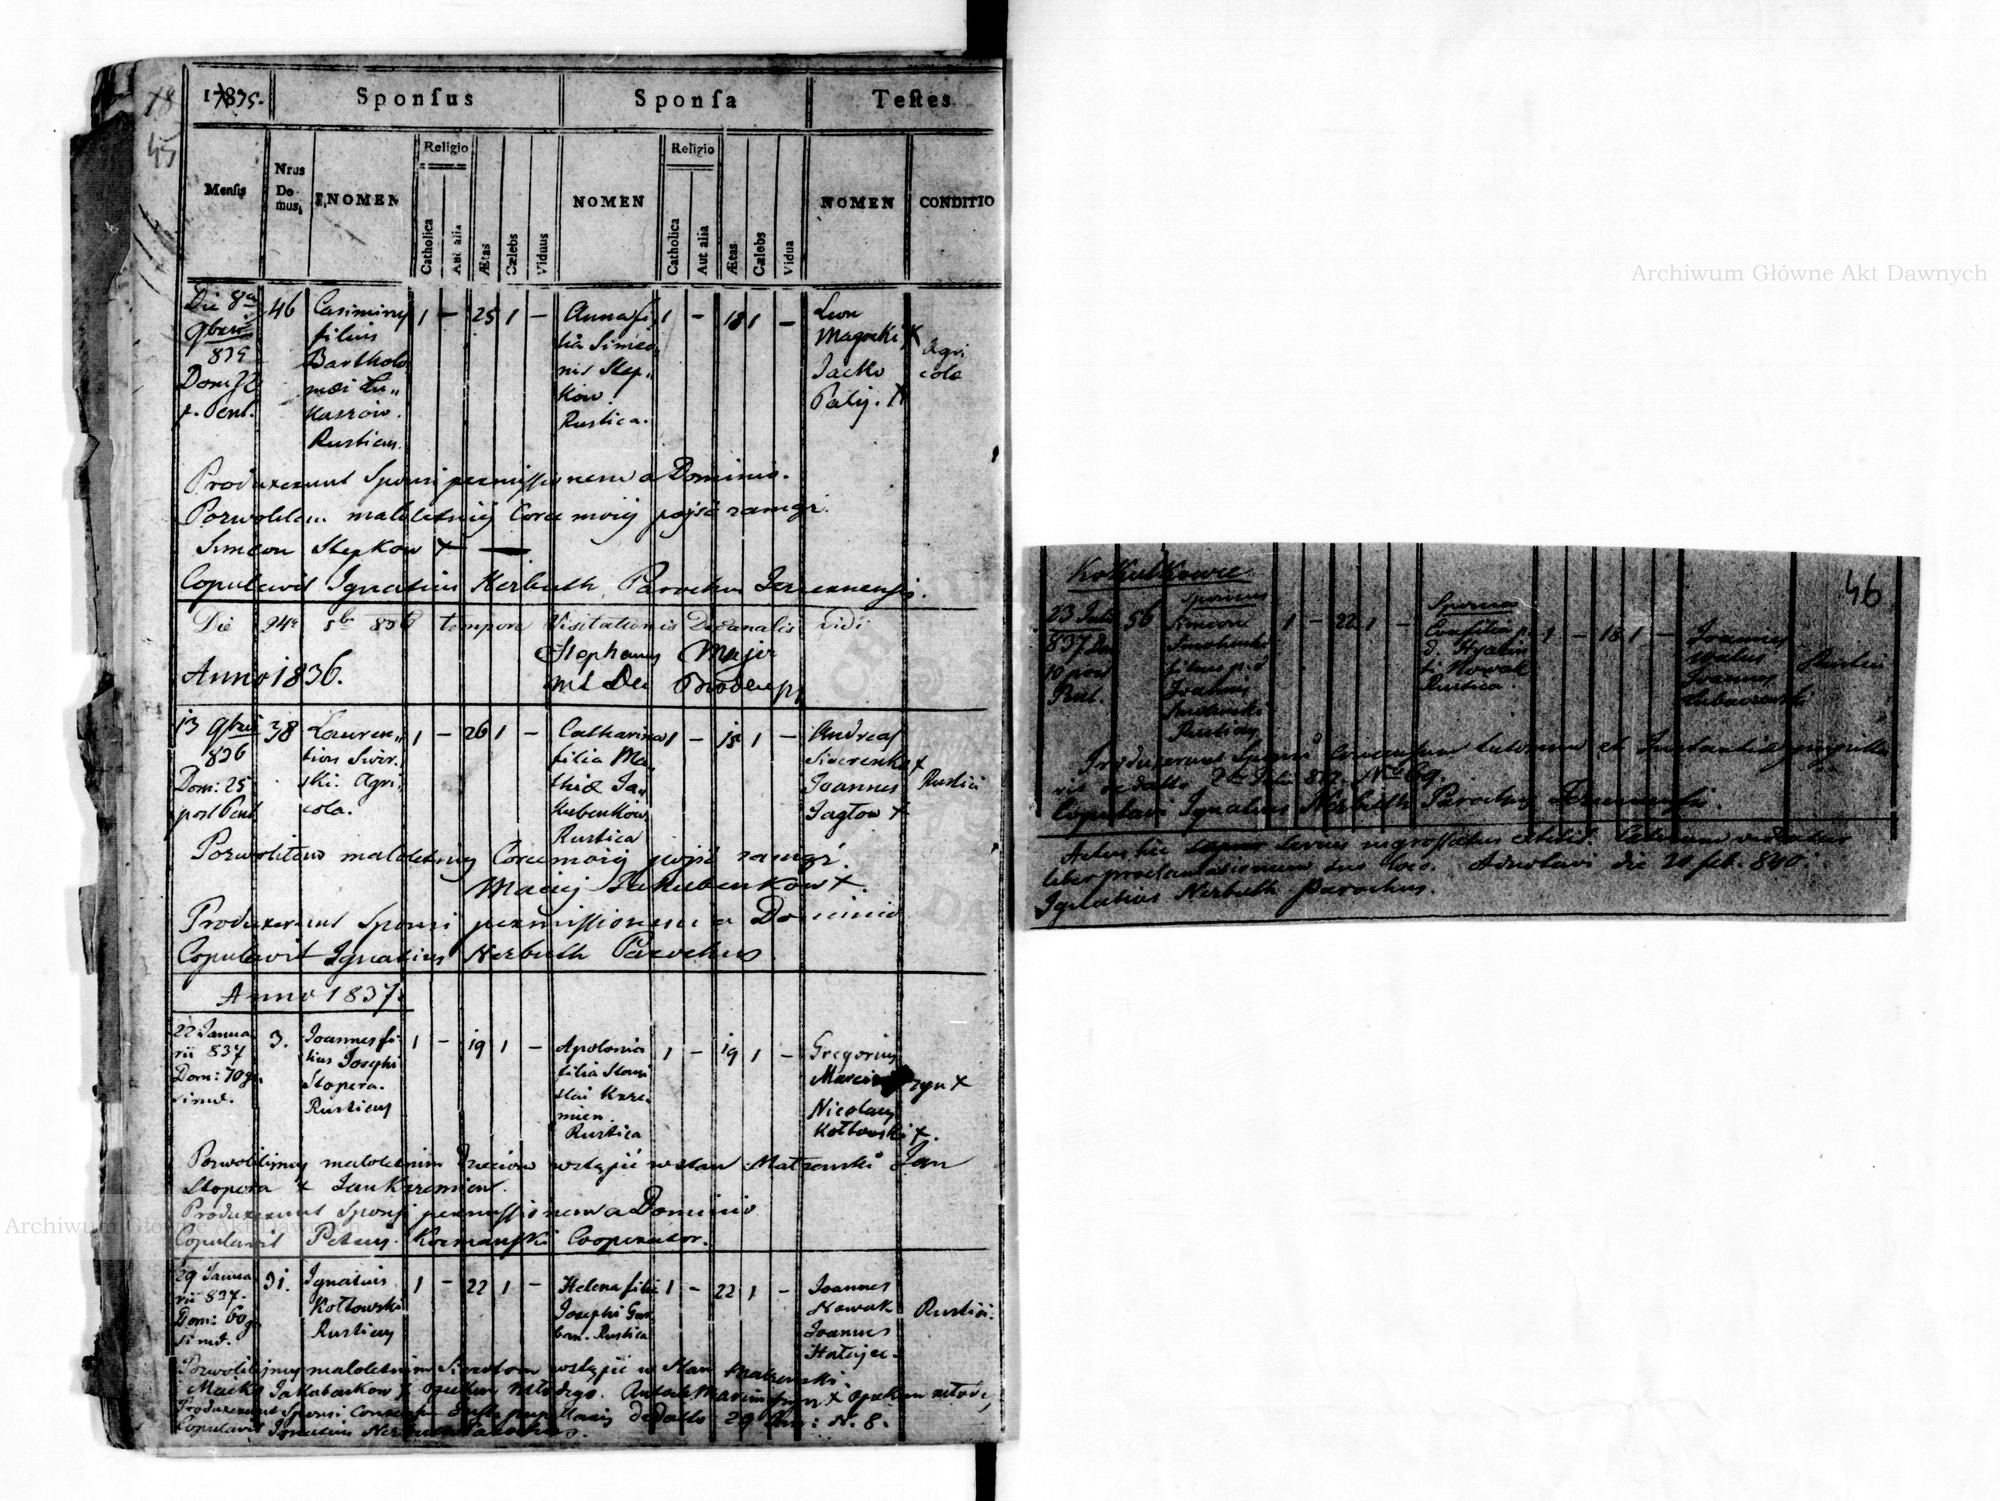 78
45
1835.
Sponsus
Sponsa
Testes
Mensis
Nrus Domus
NOMEN
Religio
Catholica
Aut alia
Ætas
Cælebs
Viduus
NOMEN
Religio
Catholica
Aut alia
Ætas
Cælebs
Vidua
NOMEN
CONDITIO
Die 8a
9bris
835
Dom
p. Pent.
46
Casimirus
filius
Bartholo
mæi Łu„
kaszów.
Rusticus.
1 – 25 1 –
Anna fi
lia Simeo„
nis Step„
ków.
Rustica.
1 – 18 1 –
Leon
Magocki X
Jacko
Patij. X
Agri
cola
Produxerunt Sponsi permissionem a Dominio.
Pozwoliłem małoletniéj Corce moiéj pójść zamąż.
Simeon Stepkow + —
Copulavit Ignatius Nerbuth, Parochus
Die 24a 8b 836 tempore Visitationis Decanalis vidi
Stephanus Majer
Anno 1836.
13 9bris
836
Dom: 25
post Pent
38
Lauren„
tius Swir„
ski. Agri„
cola.
1 – 26 1 –
Catharina
filia Ma„
thiæ Ja„
kubenków
Rustica
1 – 18 1 –
Andreas
Siwerenko +
Joannes
Jagłow +
Rustici
Pozwoliłem małoletniéj Corce moiéj pójść zamąż.
Maciej Jakubenkow +.
Produxerunt Sponsi permissionem a Dominio
Copulavit Ignatius Nerbuth Parochus
Anno 1837.
22 Janua
rii 837
Dom: 70ge
simæ.
3.
Joannes fi
lius Josephi
Stopera.
Rusticus
1 – 19 1 –
Apolonia
filia Stani
slai Krze„
mien.
Rustica
1 – 19 1 –
Gregorius
Marcin
czyn +
Nicolaus
Kotłowski +.
Pozwolilismy małoletnim Dzieciom wstąpić w stan Małzenski Jan
Stopera + Jan Krzemien.
Produxerunt Sponsi permissionem a Dominio
Copulavit Petrus Kozmanski Cooperator.
29 Janua
rii 837.
Dom: 60ge
simæ.
31.
Ignatius
Kotłowski
Rusticus
1 – 22 1 –
Helena filia
Josephi Gur
ban. Rustica
1 – 22 1 –
Joannes
Nowak
Joannes
Hałajec.
Rustici.
Pozwolilismy małoletnim Sierotom wstąpić w Stan Małzenski.
Macko Jakubenkow + opiekun młodego. Antoni Marcin + opiekun młodej
Produxerunt Sponsi Consensum Inst. pupillaris de datto 29 Jan: N. 8.
Copulavit Ignatius Nerbuth Parochus.
46
23 Julii
837 Dom
10 post
Pent.
56
Sponsus
Simeon
Smolinski
filius p. d.
Joannis
Smolinski
Rusticus
1 – 22 1 –
Sponsa
filia p.
d. Hyacin
ti Nowak
Rustica.
1 – 18 1 –
Joannes
Joannes
Rustici
Produxerunt Sponsi Consensum tutorum et Instantiæ pupilla
ris de datto No 69.
Copulavi Ignatius Nerbuth Parochus
Actus hic serius ingrossatus
liber proclamationum suo loco. Adnotavi die 20 feb. 840
Ignatius Nerbuth parochus.
Archiwum Główne Akt Dawnych
Archiwum Główne Akt Dawnych